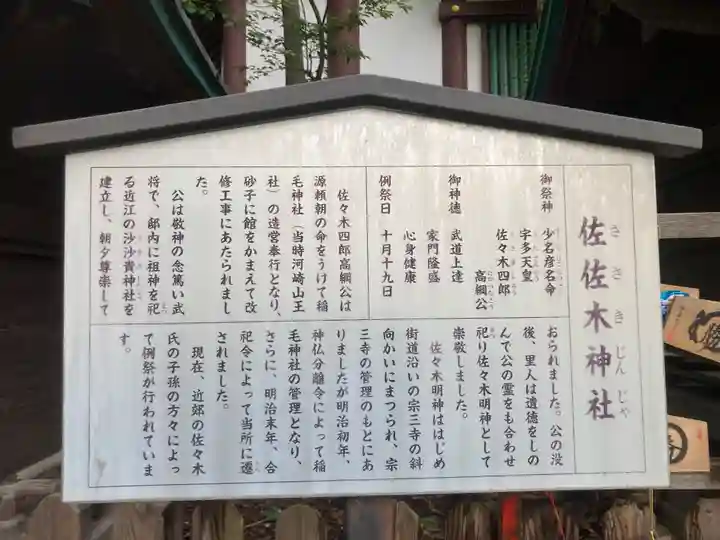 佐佐木神社
さ さ き じん じゃ
御祭神 少名彦名命
宇多天皇
佐々木四郎
高綱公
御神徳 武道上達
家門隆盛
心身健康
例祭日 十月十九日
佐々木四郎高綱公は
源頼朝の命をうけて稲
毛神社(当時河崎山王
社)の造営奉行となり、
砂子に館をかまえて改
修工事にあたられまし
た。
公は敬神の念篤い武
将で、邸内に祖神を祀
る近江の沙沙貴神社を
建立し、朝夕尊崇して
おられました。公の没
後、里人は遺徳をしの
んで公の霊をも合わせ
祀り佐々木明神として
崇敬しました。
佐々木明神ははじめ
街道沿いの宗三寺の斜
向かいにまつられ、宗
三寺の管理のもとにあ
りましたが明治初年、
神仏分離令によって稲
毛神社の管理となり、
さらに、明治末年、合
祀令によって当所に遷
されました。
現在、近郊の佐々木
氏の子孫の方々によっ
て例祭が行われていま
す。